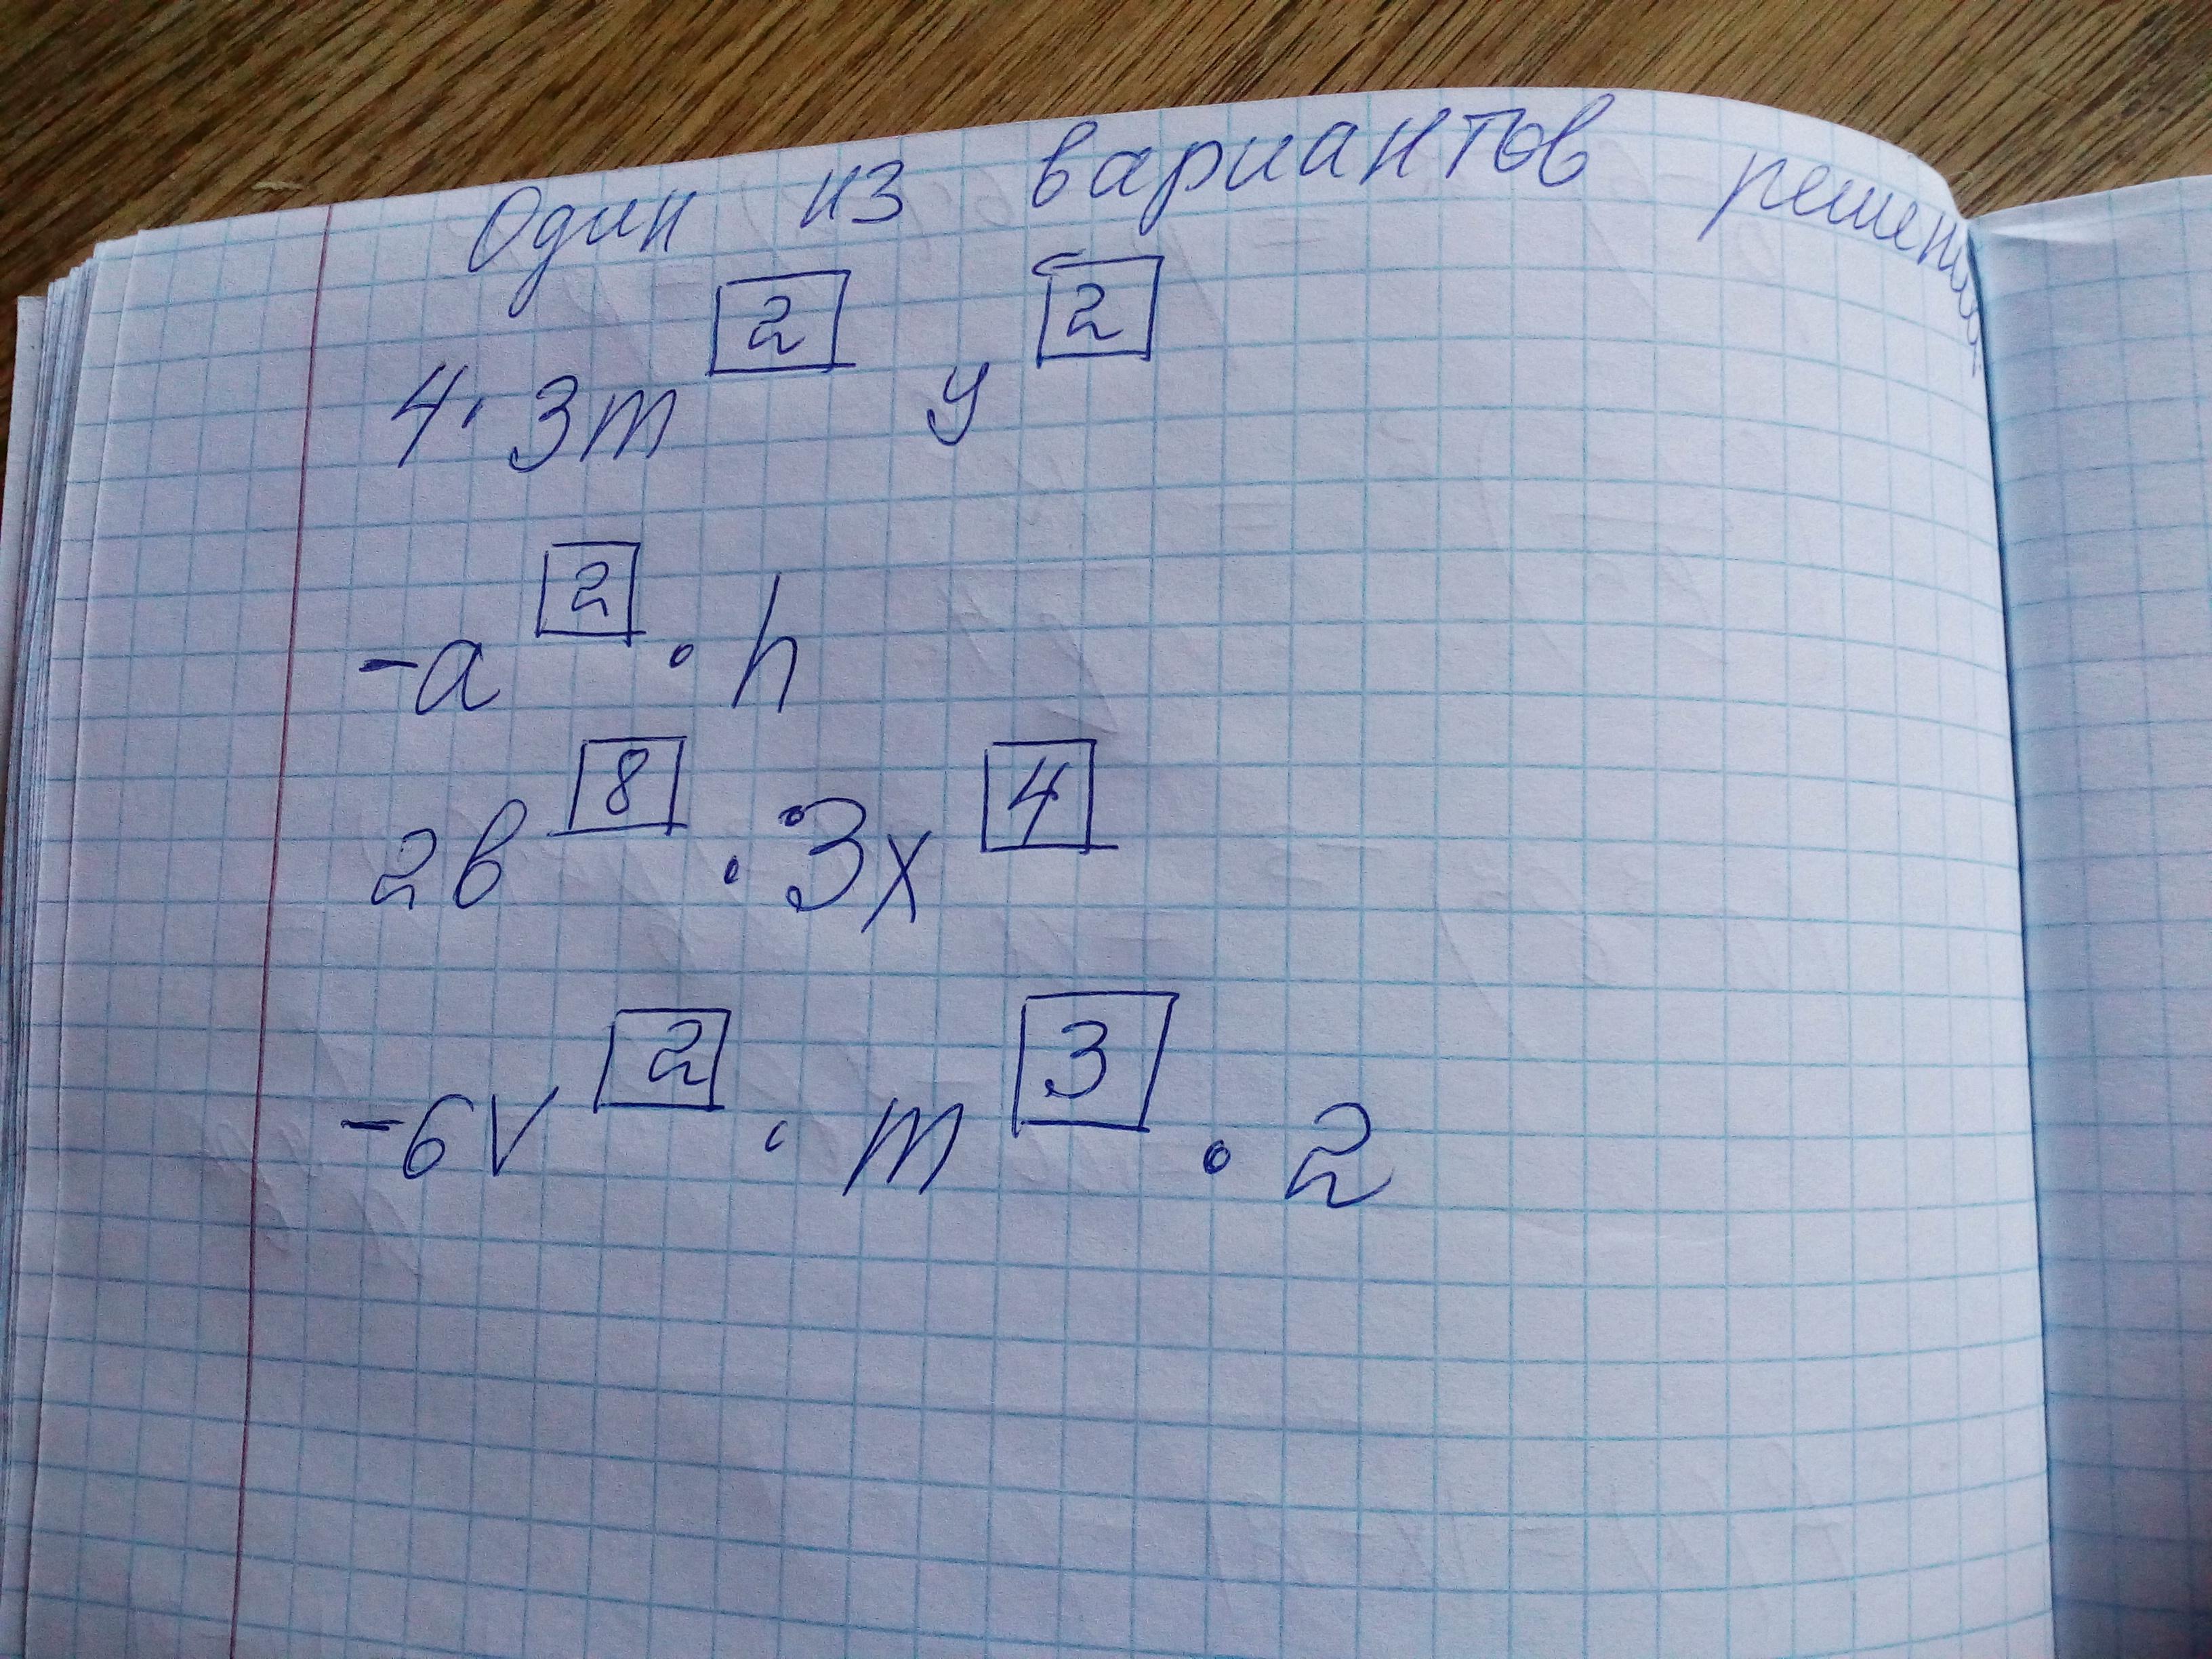 Один из вариантов решения
4·3m² y²
-a²·h
2в⁸·3x⁴
-6v²·m³·2